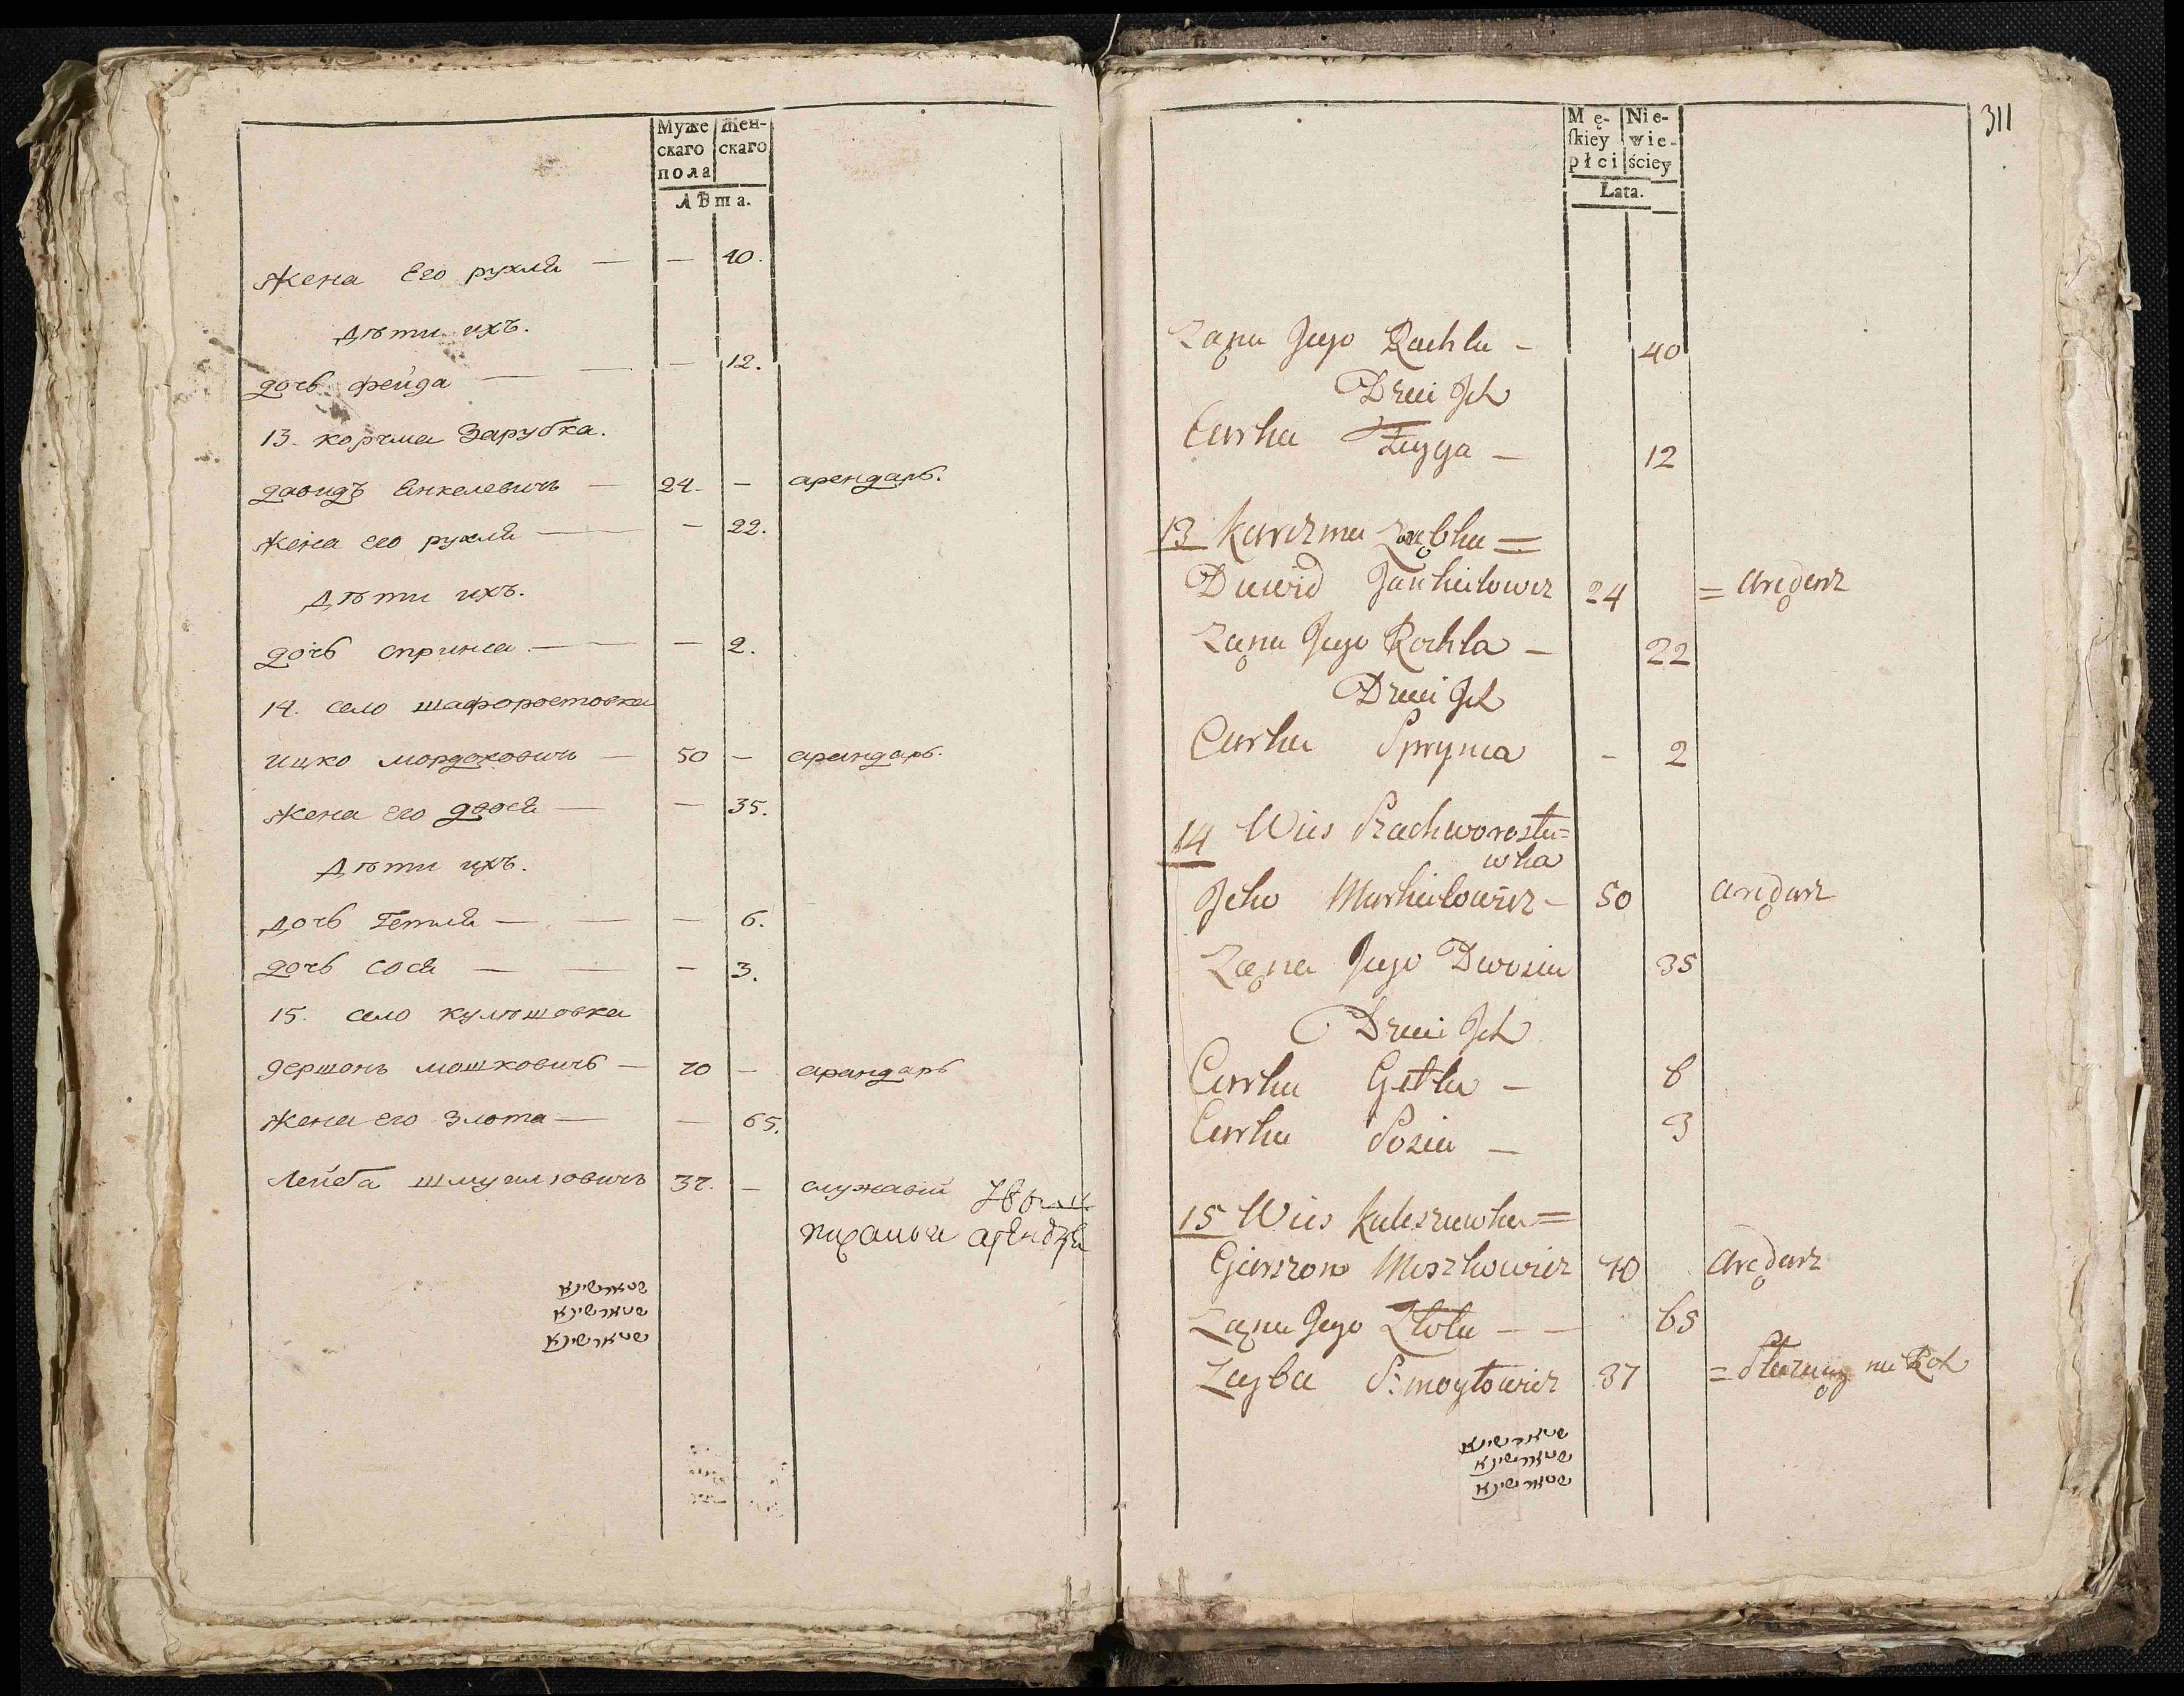 Муже скаго пола
жен- скаго
лѣта.
жена Его рухля — — 40.
дѣти ихъ.
дочь фейда — — 12.
13. корчма Зарубка.
давидъ Енкелевичъ — 24. — арендарь.
жена его рухля — — 22.
дѣти ихъ.
дочь спринса — — 2.
14. село шафоростовка
ицко мордоховичъ — 50 — арандарь.
жена его двося — — 35.
дѣти ихъ.
дочь Гетля — — 6.
дочь сося — — 3.
15. село кулѣшовка
гершонъ мошковичъ — 70 — арандарь
жена его Злота — — 65.
Лейба шмуиловичъ 37. — служащій
311
Mę- skiey płci
Nie- wie- ściey
Lata.
Zana Jego Rachla — 40
Dzieci Ich
Curka Fayga — 12
13 Karczma Zrąbka =
Dawid Jankielowicz 24 = arędarz
Zana Jego Rochla — 22
Dzieci Ich
Curka Sprynca - 2
14 Wies Szachworostu=
wka
Icko Markielowicz — 50 arędarz
Zana Jego Dwosia 35
Dzieci Ich
Curka Getla — 6
Curka Sosia — 3
15 Wies Kuleszuwka =
Gierszon Moszkowicz 70 arędarz
Zana Jego Złota — — 65
Layba Szmoylowicz 37